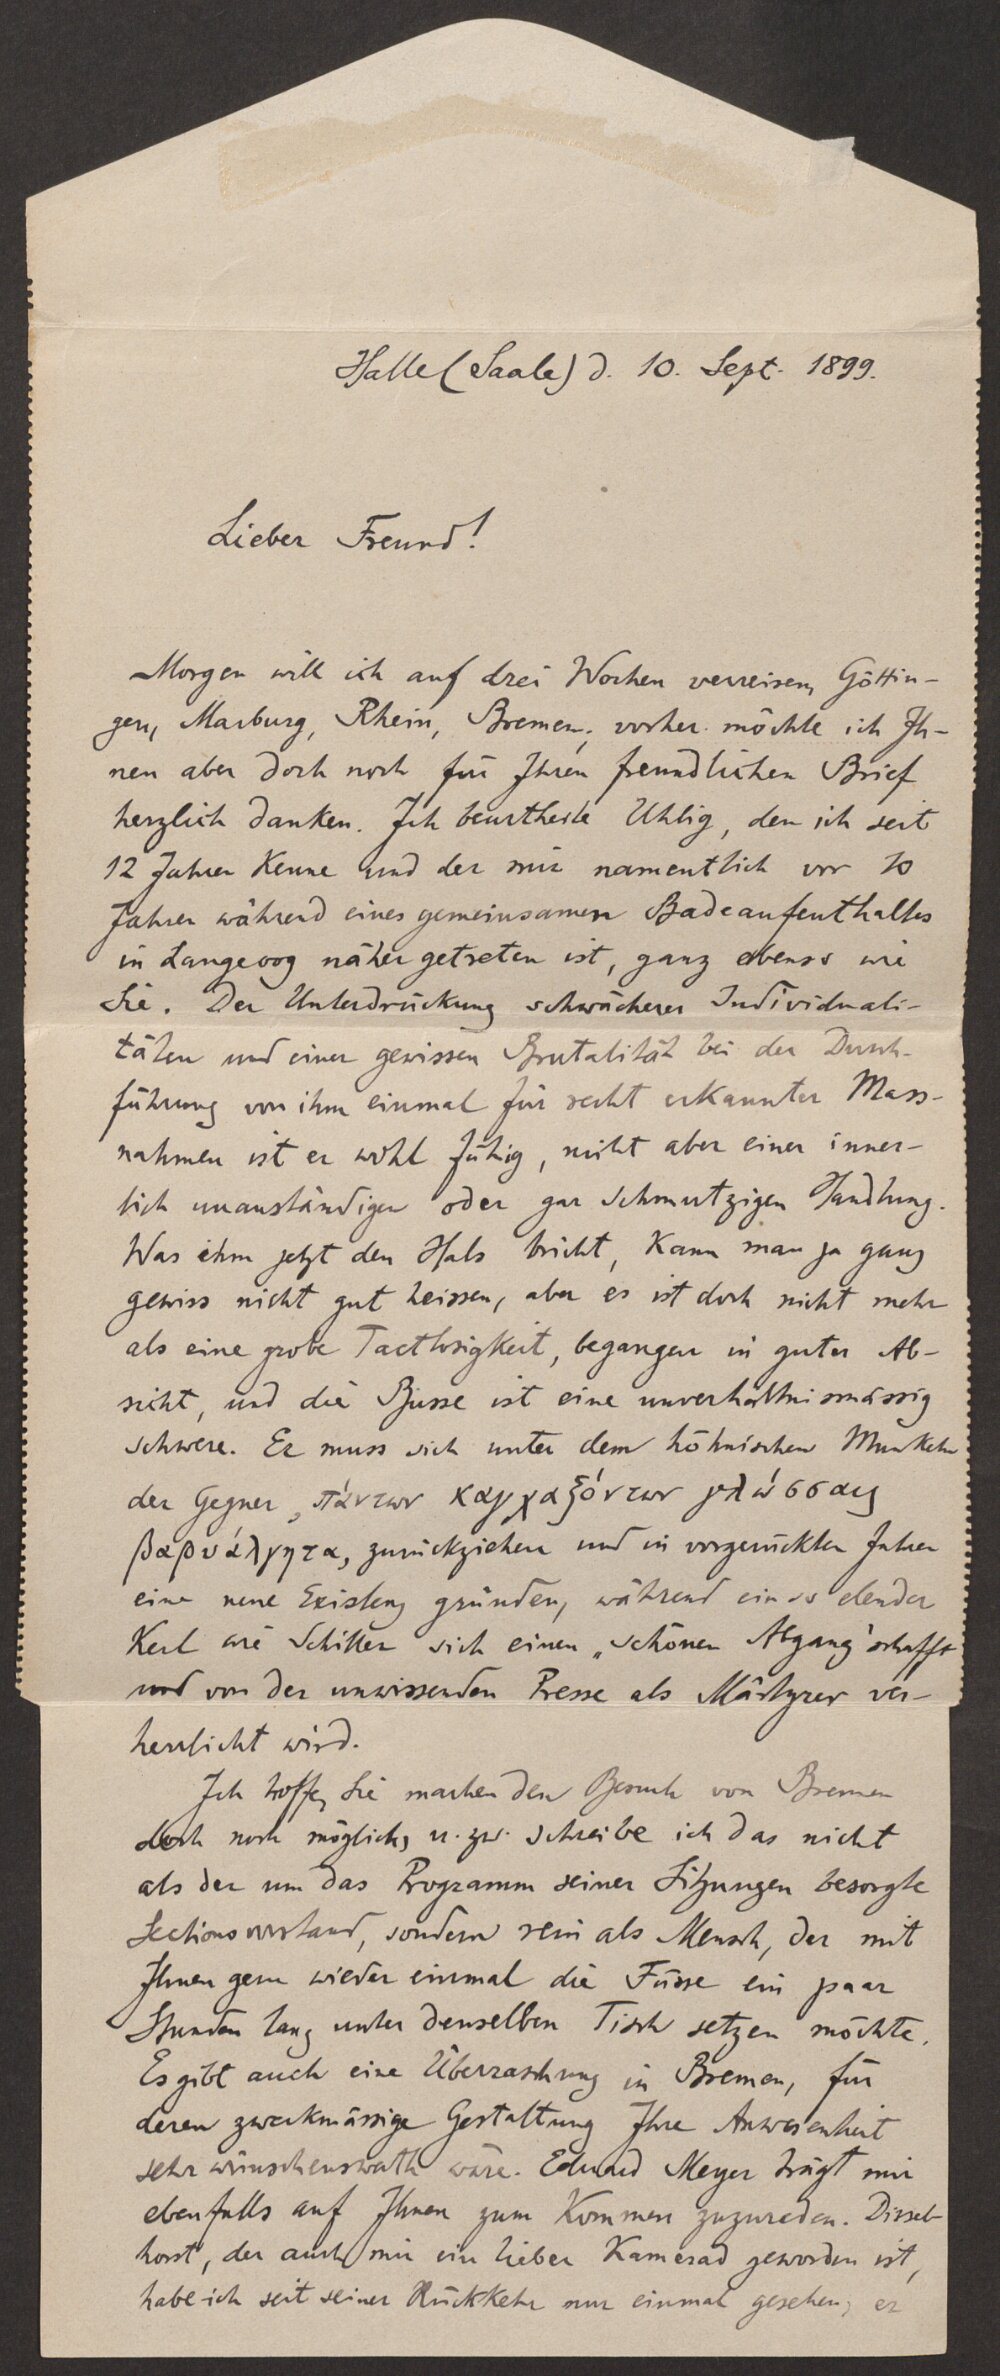 Halle (Saale) d. 10. Sept. 1899.
Lieber Freund!
Morgen will ich auf drei Wochen verreisen, Göttin-
gen, Marburg, Rhein, Bremen; vorher möchte ich Ih-
nen aber doch noch für Ihren freundlichen Brief
herzlich danken. Ich beurtheile Uhlig, den ich seit
12 Jahren kenne und der mir namentlich vor 10
Jahren während eines gemeinsamen Badeaufenthaltes
in Langeoog näher getreten ist, ganz ebenso wie
Sie. Der Unterdrückung schwächerer Individuali-
täten und einer gewissen Brutalität bei der Durch-
führung von ihm einmal für recht erkannter Mass-
nahmen ist er wohl fähig, nicht aber einer inner-
lich unanständigen oder gar schmutzigen Handlung.
Was ihm jetzt den Hals bricht, kann man ja ganz
gewiss nicht gut heissen, aber es ist doch nicht mehr
als eine grobe Tactlosigkeit, begangen in guter Ab-
sicht, und die Busse ist eine unverhältnismässig
schwere. Er muss sich unter dem höhnischen Munkeln
der Gegner, πάντων καγχαζόντων γλώσσαις
βαρυάλγητα, zurückziehen und in vorgerückten Jahren
eine neue Existenz gründen, während ein so elender
Kerl wie Schiller sich einen „schönen Abgang" schafft
und von der unwissenden Presse als Märtyrer ver-
herrlicht wird.
Ich hoffe, Sie machen den Besuch von Bremen
doch noch möglich, u. zw. schreibe ich das nicht
als der um das Programm seiner Sitzungen besorgte
Sectionsvorstand, sondern rein als Mensch, der mit
Ihnen gern wieder einmal die Füsse ein paar
Stunden lang unter denselben Tisch setzen möchte.
Es gibt auch eine Überraschung in Bremen, für
deren zweckmässige Gestaltung Ihre Anwesenheit
sehr wünschenswerth wäre. Eduard Meyer trägt mir
ebenfalls auf Ihnen zum Kommen zuzureden. Dissel-
horst, der auch mir ein lieber Kamerad geworden ist,
habe ich seit seiner Rückkehr nur einmal gesehen; er